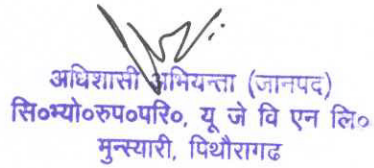 अधिशासी अभियन्ता (जानपद)
सि०भ्यो०रुप०परि०, यू जे वि एन लि०
मुन्स्यारी, पिथौरागढ